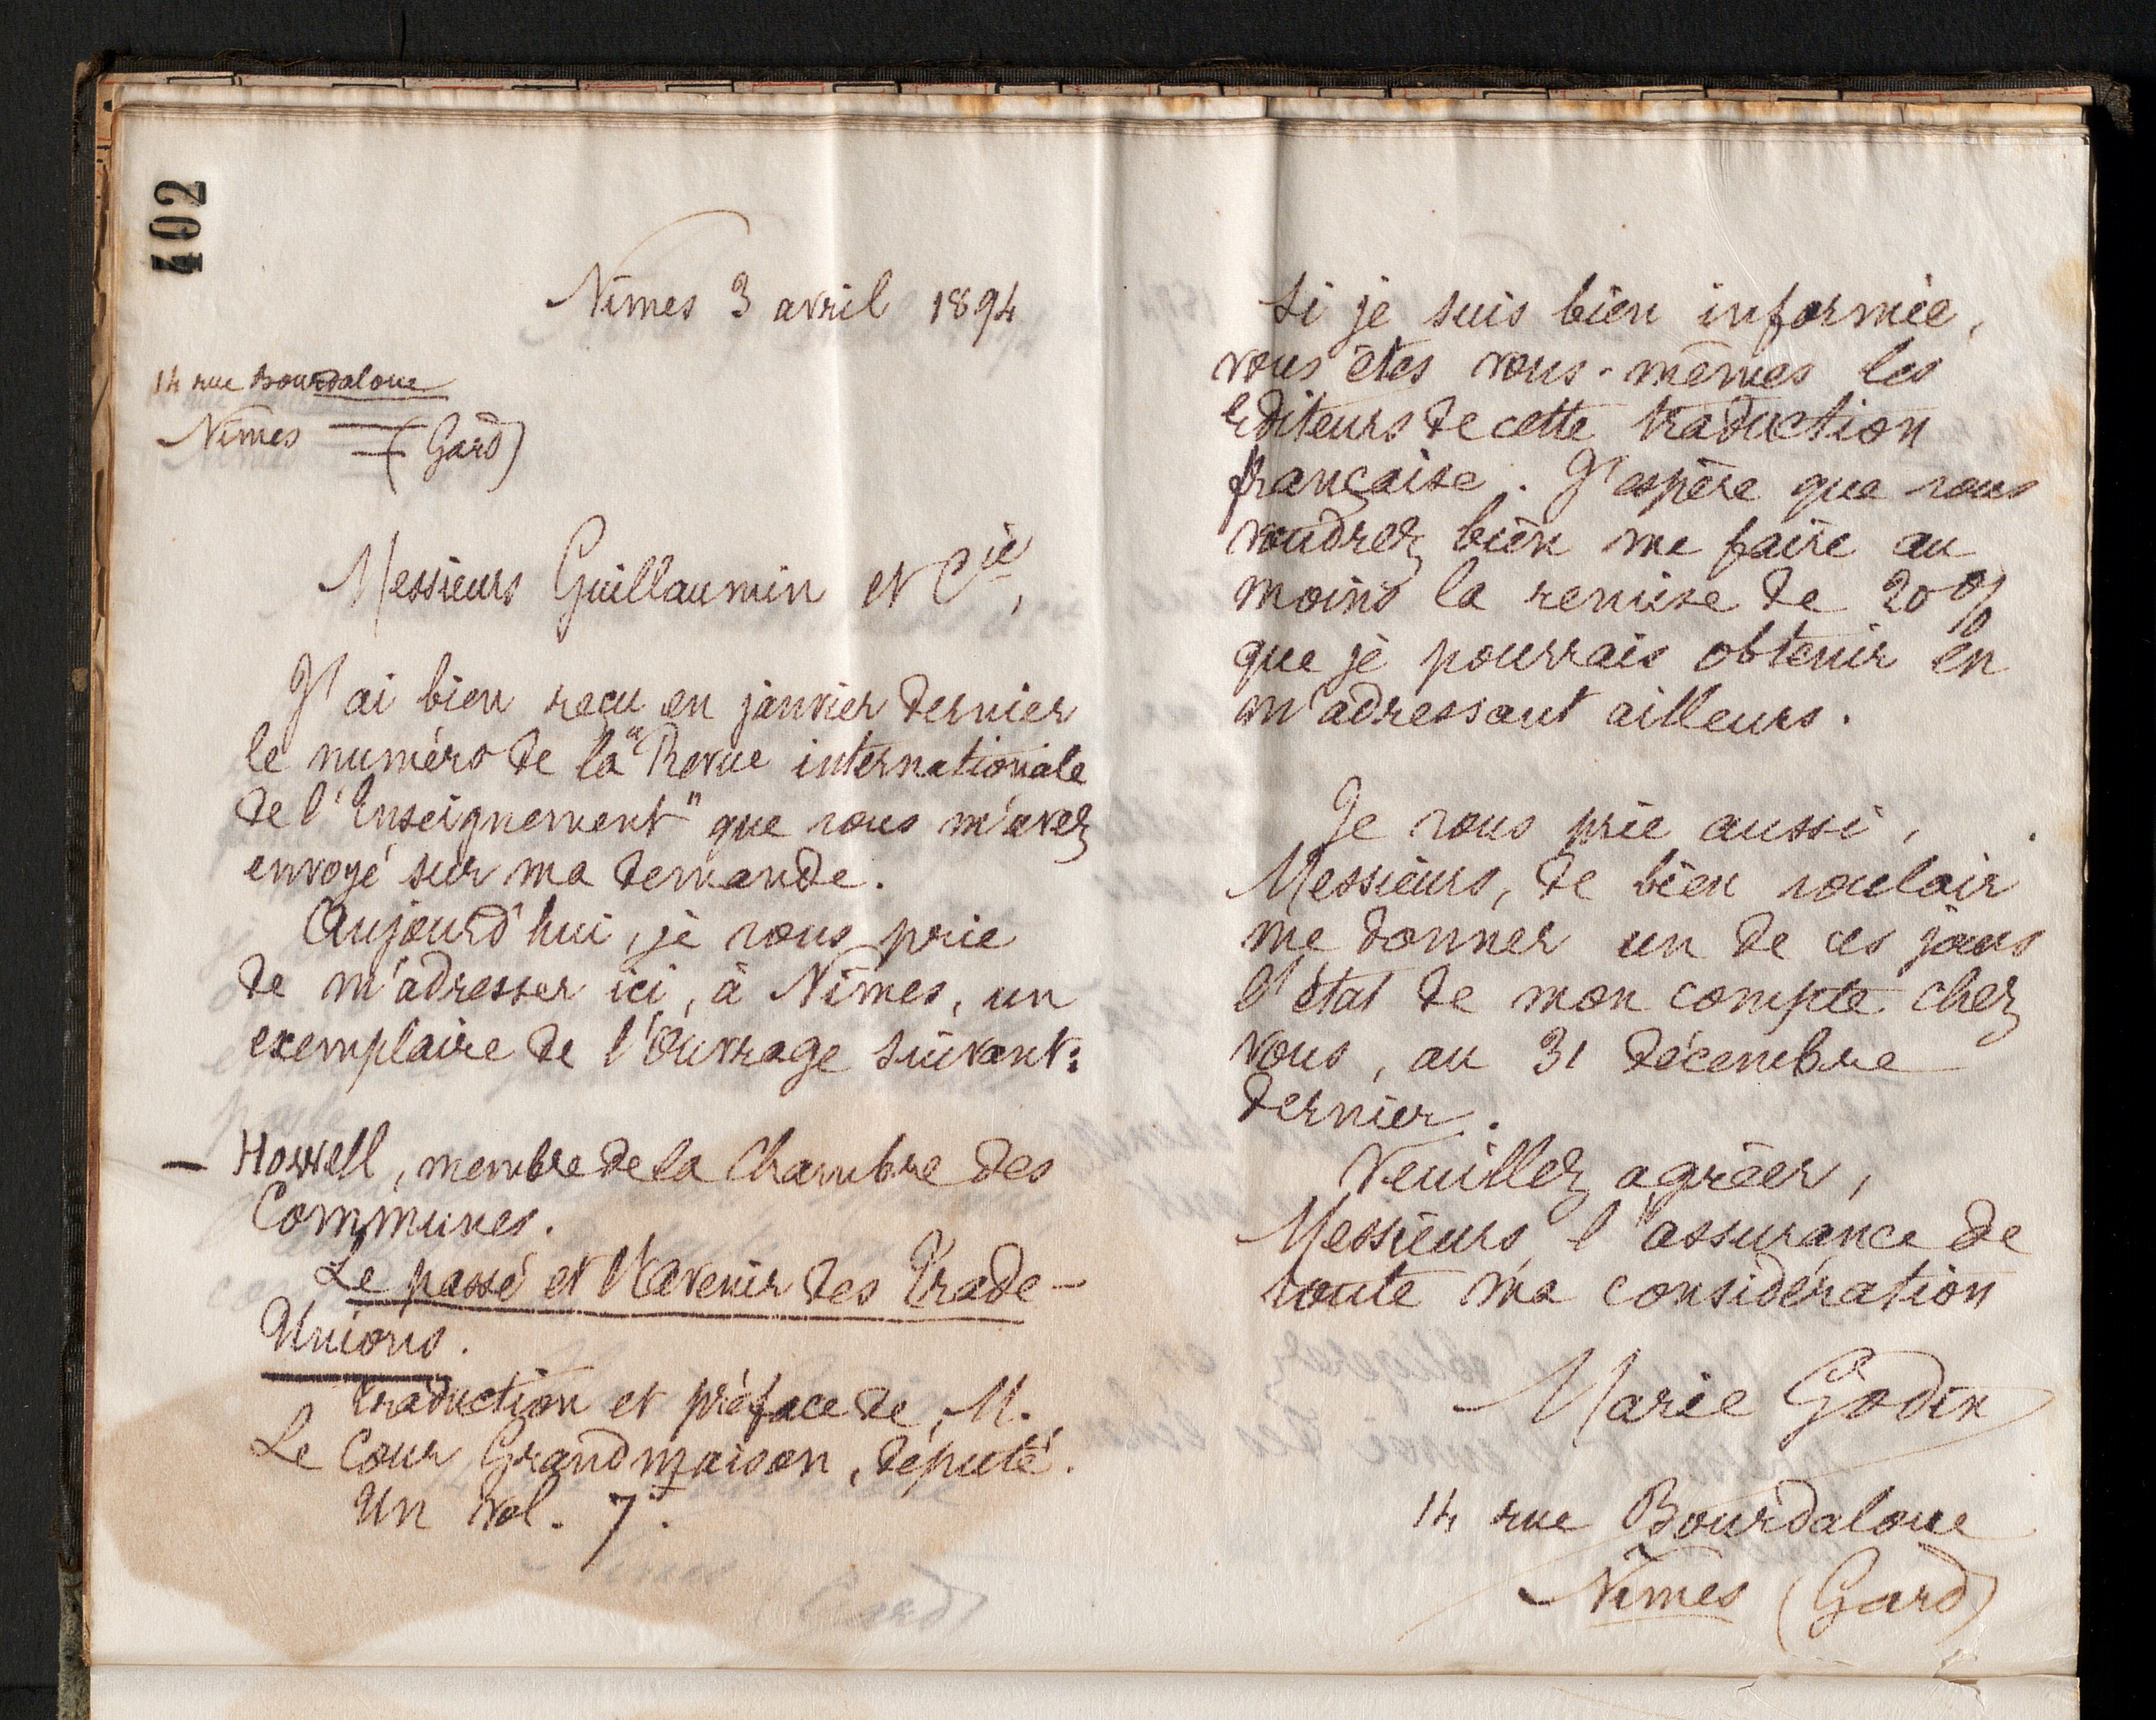 402
Nîmes 3 avril 1894
14 rue Bourdaloue
Nîmes (Gard)
Messieurs Guillaumin et Cie,
J'ai bien reçu en janvier dernier
le numéro de la "Revue internationale
de l'Enseignement" que vous m'avez
envoyé sur ma demande.
Aujourd'hui, je vous prie
de m'adresser ici, à Nîmes, un
exemplaire de l'Ouvrage suivant:
— Howell, membre de la Chambre des
Communes.
Le passé et l'avenir des Trade-
Unions.
traduction et préface de M.
Le Cour Grandmaison, député.
Un vol. 7f.
Si je suis bien informée,
vous êtes vous-mêmes les
Editeurs de cette traduction
française. J'espère que vous
voudrez bien me faire au
moins la remise de 20%
que je pourrais obtenir en
m'adressant ailleurs.
Je vous prie aussi,
Messieurs, de bien vouloir
me donner un de ces jours
l'état de mon compte chez
vous, au 31 décembre
dernier.
Veuillez agréer,
Messieurs l'assurance de
toute ma considération
Marie Godin
14 rue Bourdaloue
Nîmes (Gard)